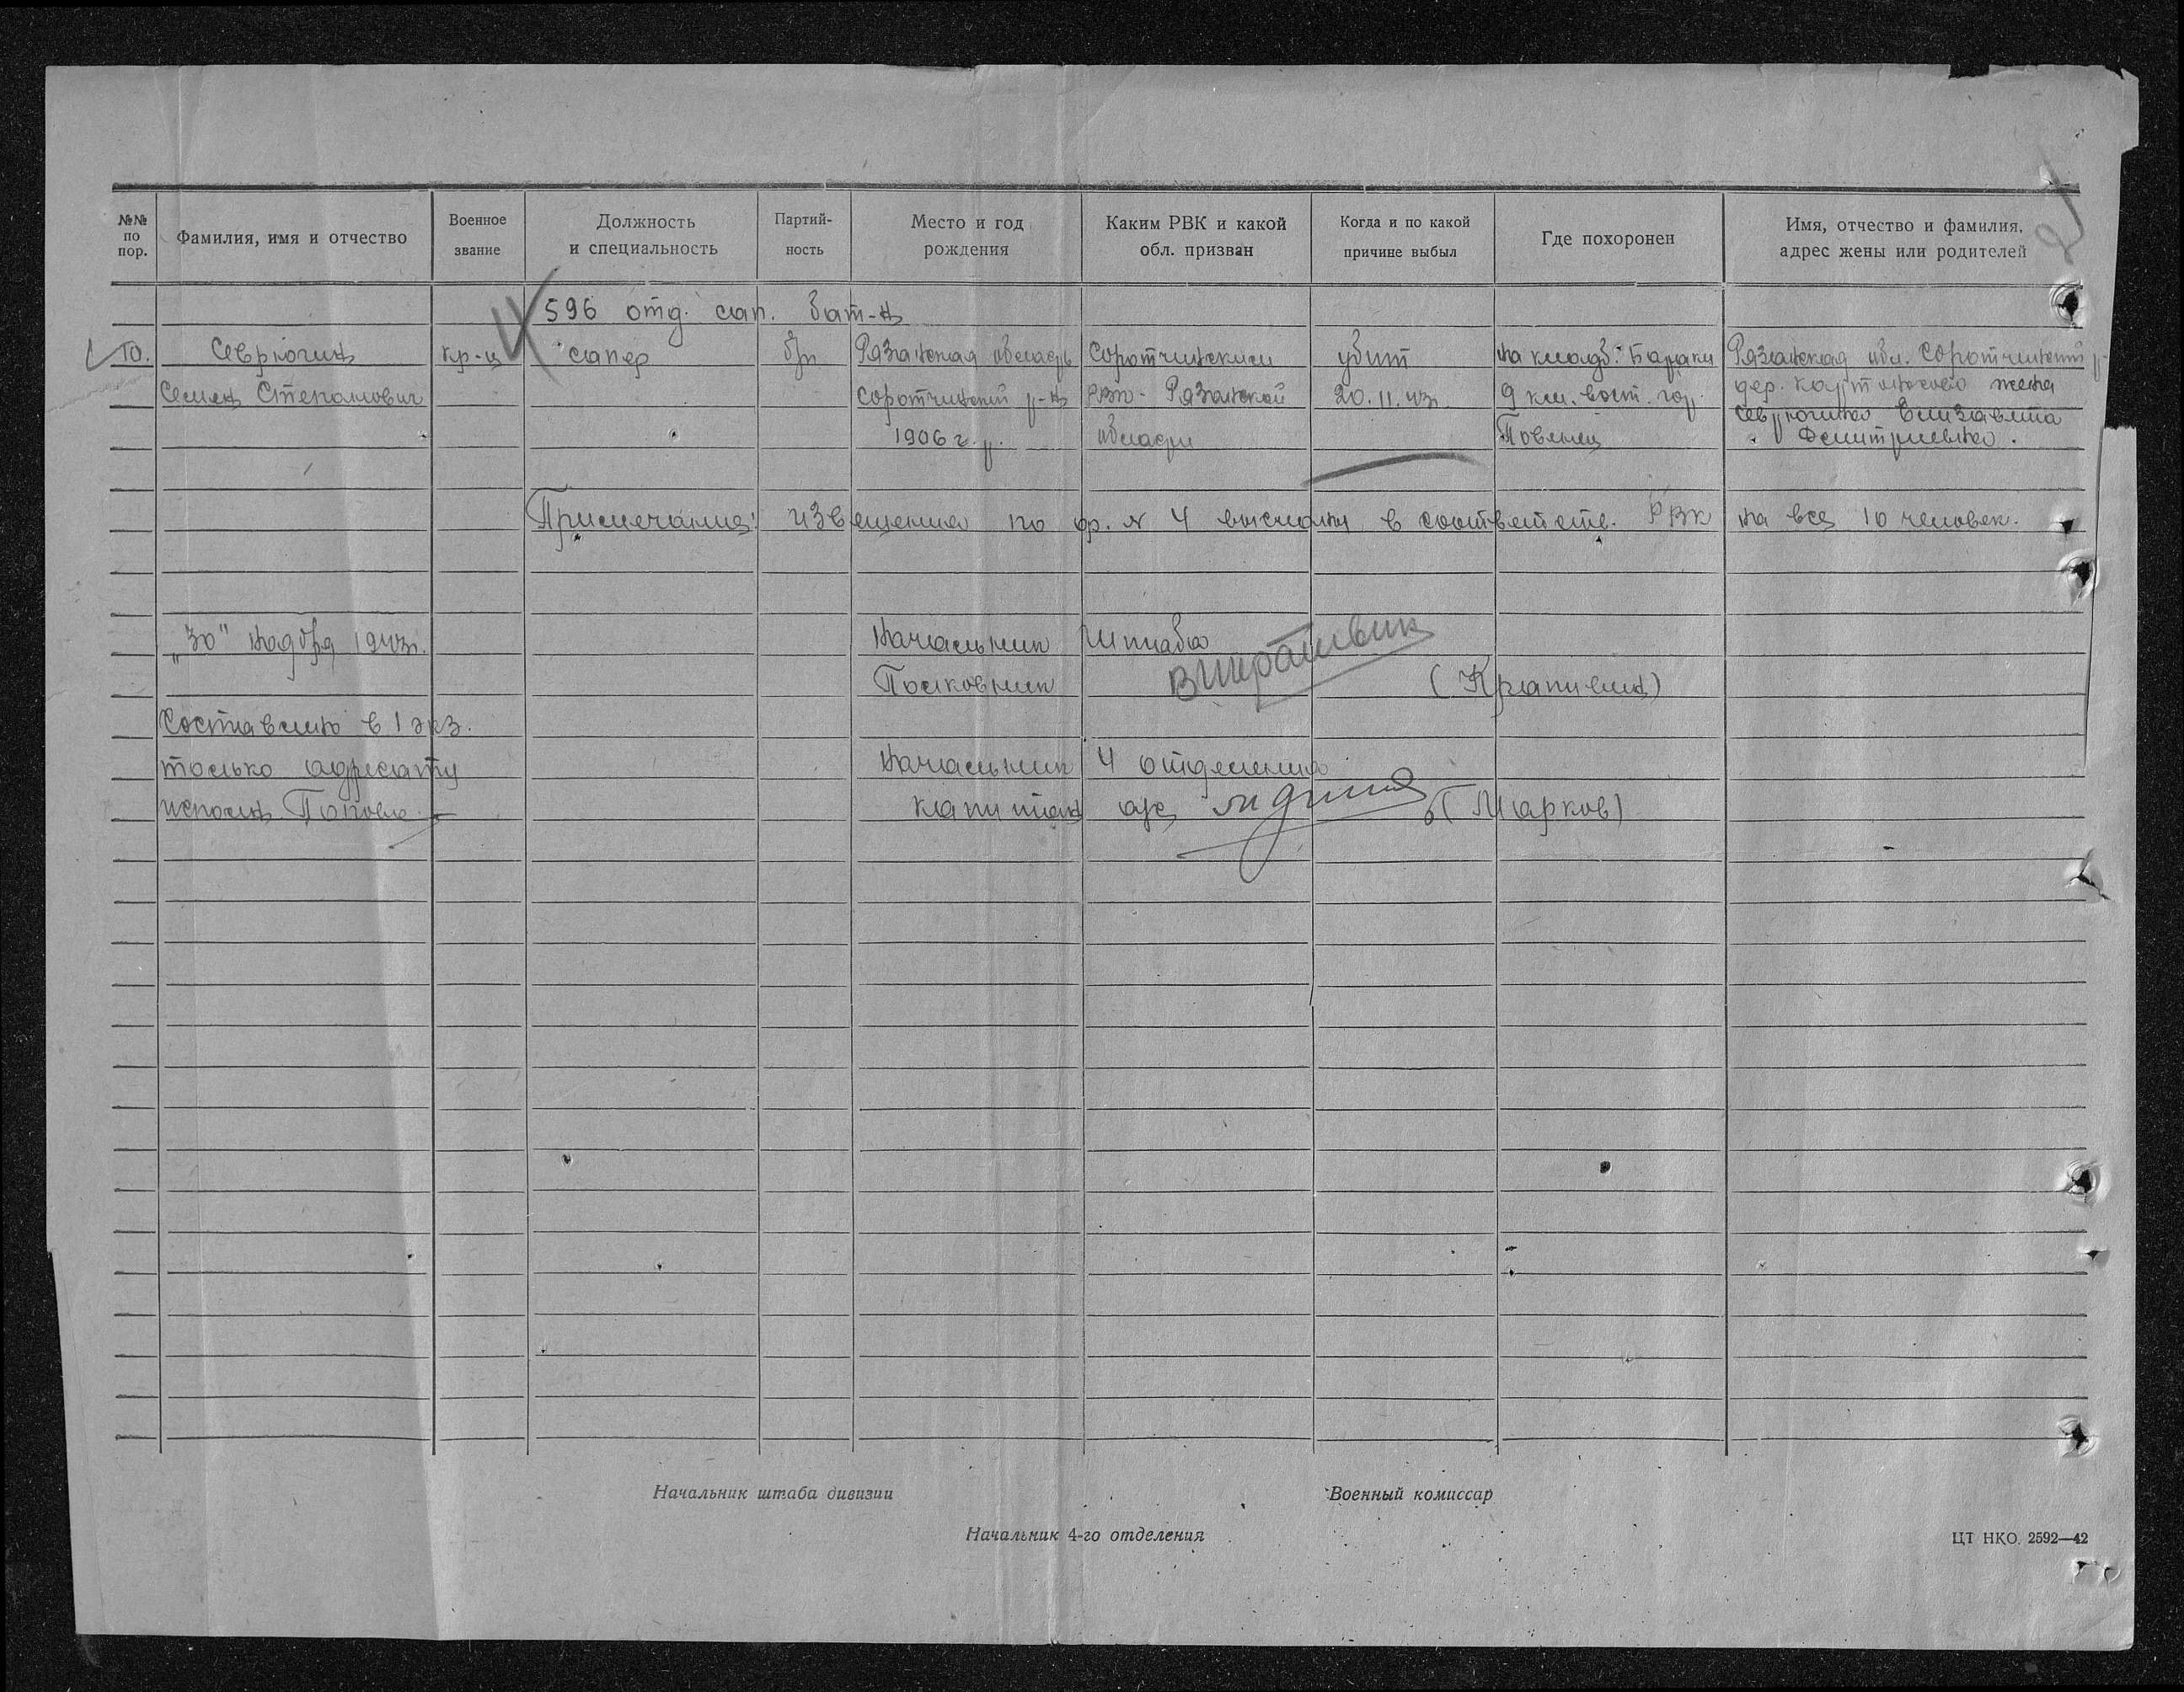 №№ по пор.
Фамилия, имя и отчество
Военное звание
Должность и специальность
Партий-ность
Место и год рождения
Каким РВК и какой обл. призван
Когда и по какой причине выбыл
Где похоронен
Имя, отчество и фамилия, адрес жены или родителей
596 отд. сап. бат-н
10. Севрюгин кр-ц сапер б/п Рязанская область Соротчинским убит на кладб. Бараки Рязанская обл. Соротчинский р
Семен Степанович Соротчинский р-н РВК Рязанской 20.11.43г. 9 км. вост. гор. дер. жена
1906 г.р. области Повенец Севрюгина Елизавета
Дмитриевна.
Примечание: извещения по ф. № 4 высланы в соответств. РВК на все 10 человек.
„30" ноября 1943г. Начальник Штаба
Полковник (Крапивин)
Составлено в 1 экз.
только адресату Начальник 4 отделения
исполн. Попова капитан а/с (Марков)
Начальник штаба дивизии
Военный комиссар
Начальник 4-го отделения
ЦТ НКО. 2592—42